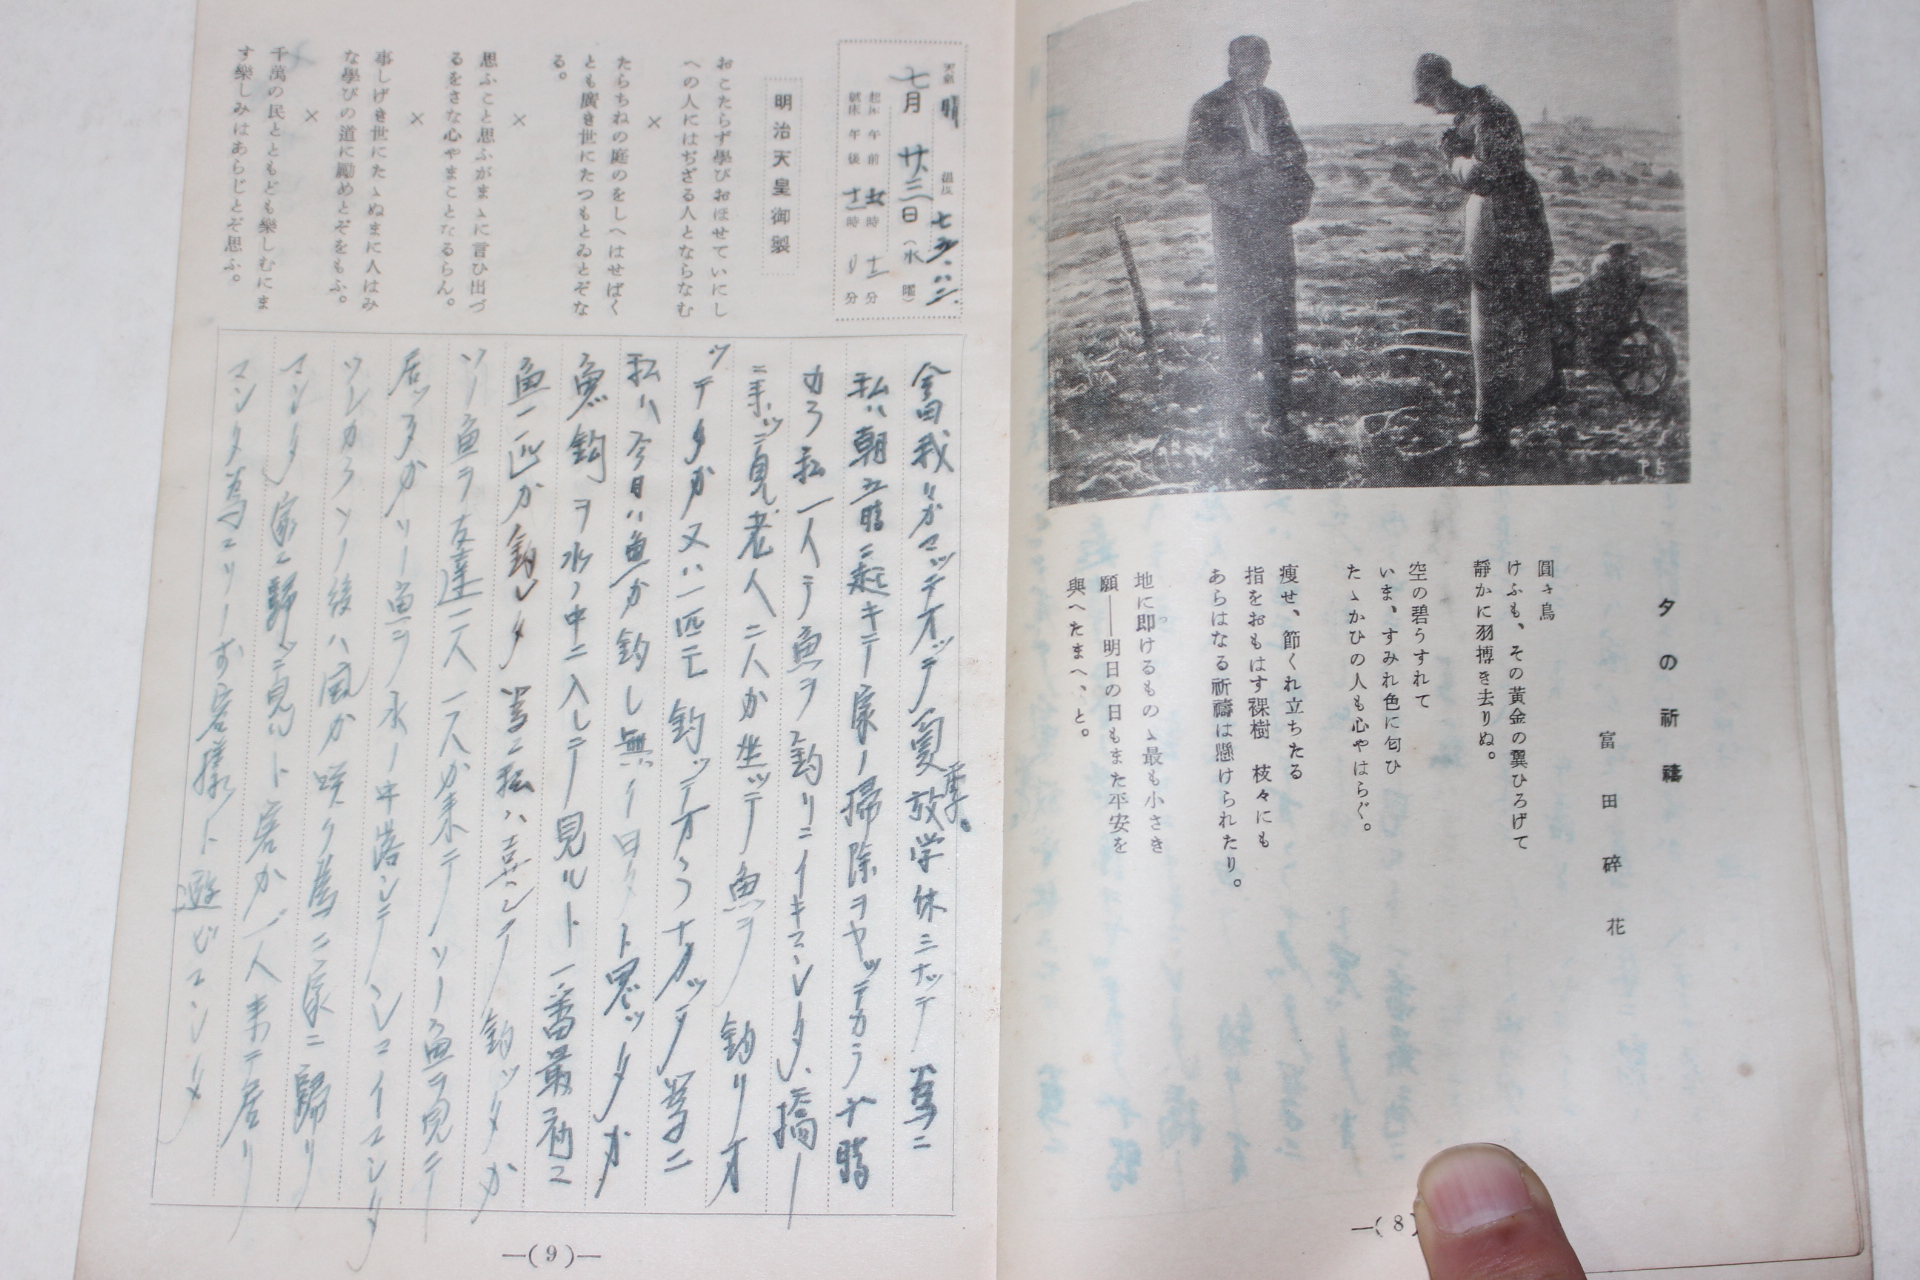 夕の祈禱
富田碎花
圓き鳥
けふも、その黄金の翼ひろげて
靜かに羽搏き去りぬ。
空の碧うすれて
いま、すみれ色に匂ひ
たゝかひの人も心やはらぐ。
瘦せ、節くれ立ちたる
指をおもはす裸樹 枝々にも
あらはなる祈禱は懸けられたり。
地に即けるものゝ最も小さき
願——明日の日もまた平安を
與へたまへ、と。
—(8)
天氣 晴 溫度 七五・八二
七月廿三日(水曜)
起床午前五時十二分
就床午後十一時〇分
明治天皇御製
おこたらず學びおほせていにし
への人にはぢざる人とならなむ
×
たらちねの庭のをしへはせばく
とも廣き世にたつもとゐとぞな
る。
×
思ふこと思ふがまゝに言ひ出づ
るをさな心やまことなるらん。
×
事しげき世にたゝぬまに人はみ
な學びの道に勵めとぞをもふ。
×
千萬の民とともども樂しむにま
す樂しみはあらじとぞ思ふ。
我々ガマッテオッテ夏季放学休ミナッテ
私ハ朝五時ニ起キテ家ノ掃除ヲヤッテカラ十時
カラ私一人テ魚ヲ釣リニイキマシタ、橋ノ
老人二人カ坐ッテ魚ヲ釣リオ
ッテタガ又ハ一匹モ釣ッテオラナカッタ
私ハ今日ハ魚カ釣レ無イ日タト思ッタカ
魚釣ヲ水ノ中ニ入レテ見ルト一番最初ニ
魚一匹カ釣レタ 私ハ喜ンテ釣ッタカ
ソノ魚ヲ友達二人カ来テソノ魚ヲ見テ
居ッタカソノ魚ヲ水ノ中落シテシマイマシタ
ソレカラソノ後ハ風カ吹ク為ニ家ニ歸リ
マシタ 家ニ歸ッテ見ルト客カ一人来テ居リ
マシタ お客様ト遊ビマシタ
—(9)—